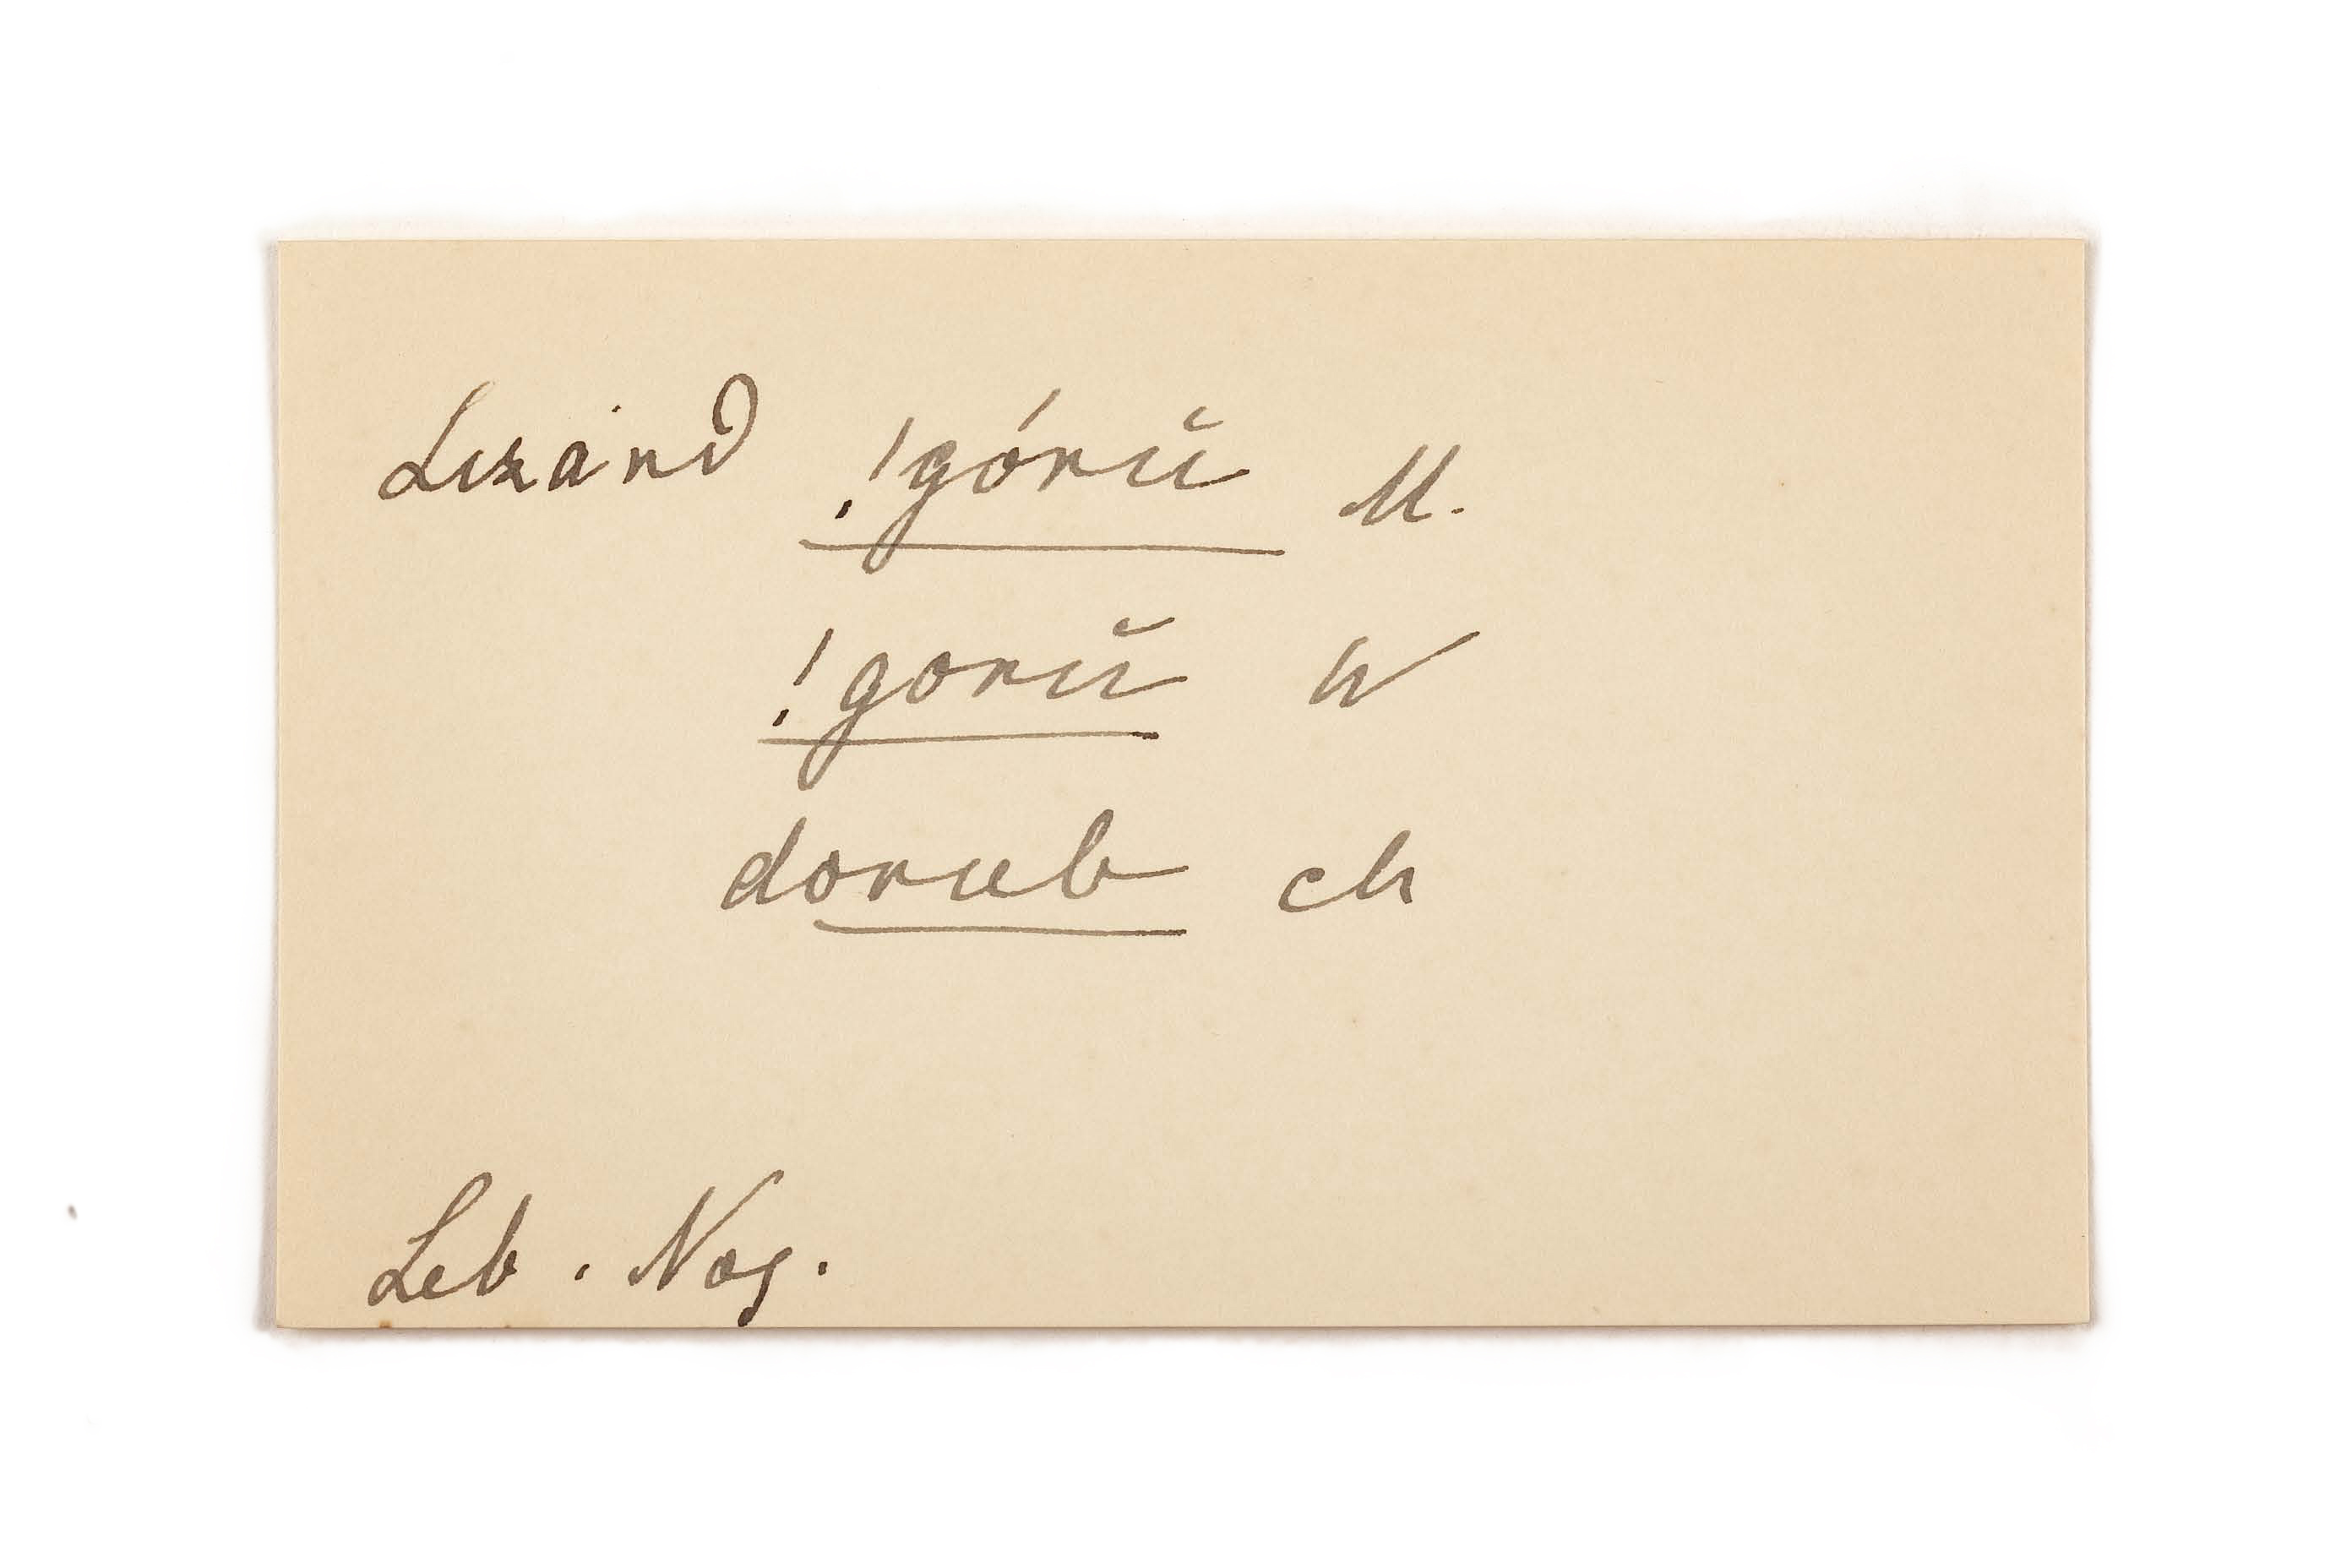 Lizard !górŭ M.
!gorŭ W
dorub ch
Leb. Nog.